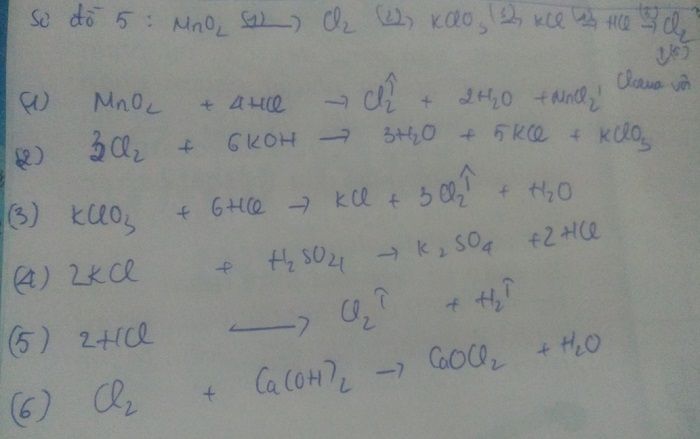 Sơ đồ 5 : MnO₂ (1)→ Cl₂ (2)→ KClO₃ (3)→ KCl (4)→ HCl (5)→ Cl₂
↓(6)
Clorua vôi
(1) MnO₂ + 4HCl → Cl₂↑ + 2H₂O + MnCl₂
(2) 3Cl₂ + 6KOH → 3H₂O + 5KCl + KClO₃
(3) KClO₃ + 6HCl → KCl + 3Cl₂↑ + H₂O
(4) 2KCl + H₂SO₄ → K₂SO₄ + 2HCl
(5) 2HCl → Cl₂↑ + H₂↑
(6) Cl₂ + Ca(OH)₂ → CaOCl₂ + H₂O